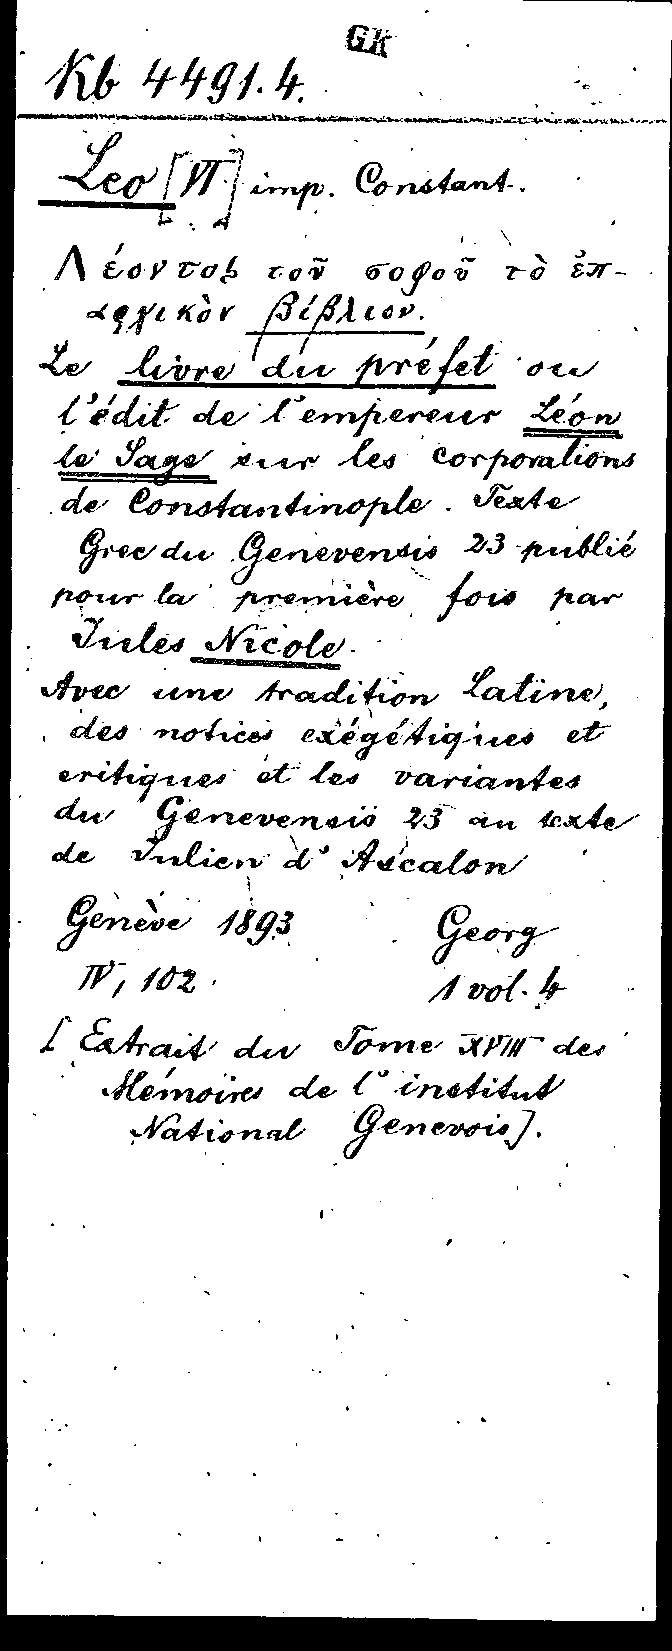 GK
Kb 4491.4.
Leo [VI] imp. Constant.
Λέοντος τοῦ σοφοῦ τὸ ἐπ-
αρχικὸν βίβλιον.
Le livre du préfet ou
l'édit de l'empereur Léon
le Sage sur les corporations
de Constantinople. Texte
Grec du Genevensis 23 publié
pour la première fois par
Jules Nicole.
Avec une tradition Latine,
des notices exégétiques et
critiques et les variantes
du Genevensis 23 au texte
de Julien d'Ascalon
Genève 1893 Georg
IV, 102. 1 vol. 4
[Extrait du Tome XVIII des
Mémoires de l'institut
National Genevois].